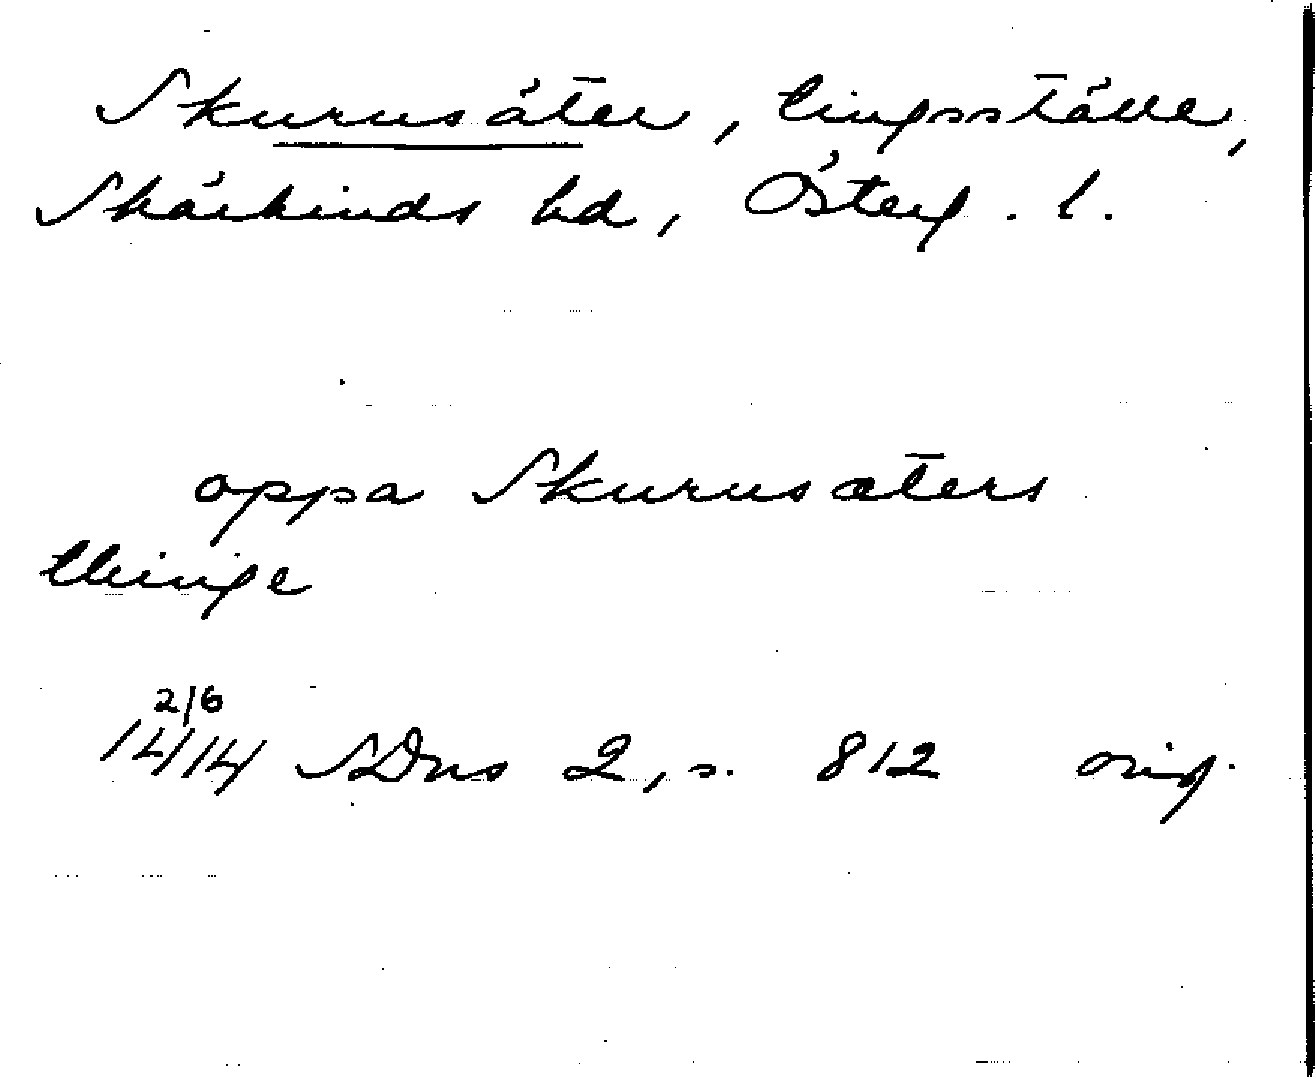 Skurusäter, tingsställe,
Skärkinds hd, Österg. l.
oppa Skurusæters
thinge
2/6
1414 SDns 2, s. 812 orig.